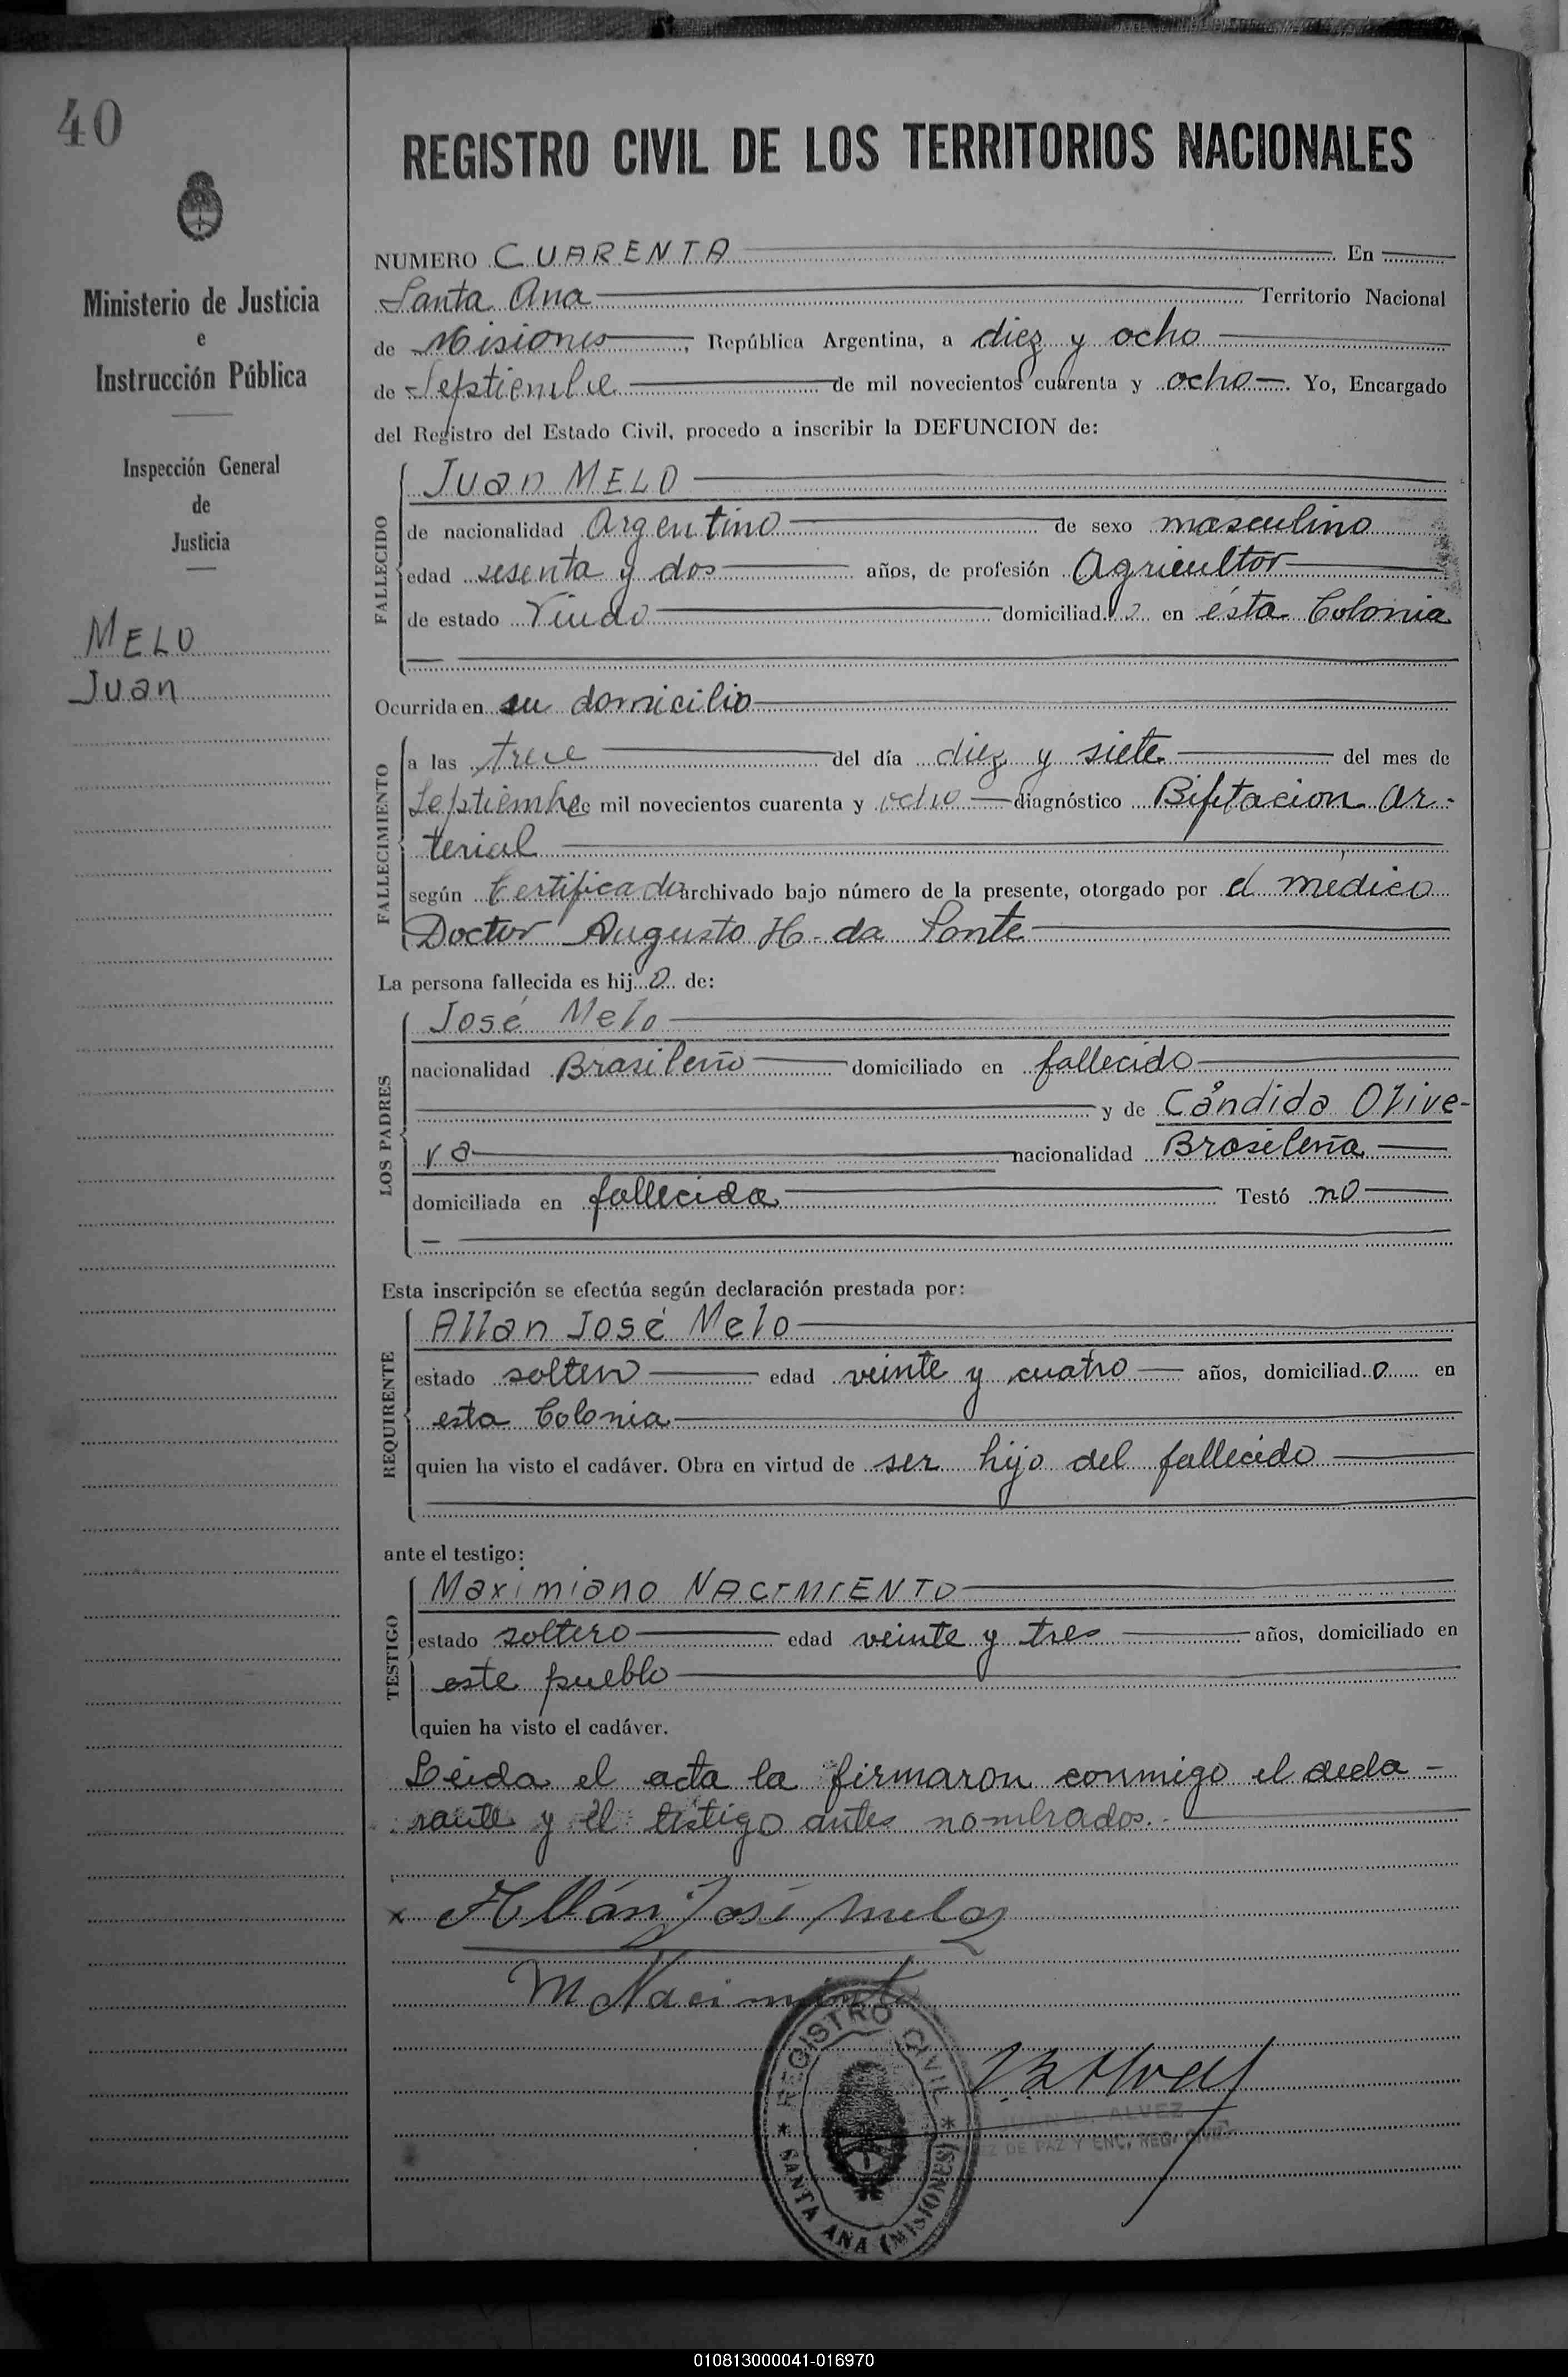 40
Ministerio de Justicia
e
Instrucción Pública
Inspección General
de
Justicia
MELO
Juan
REGISTRO CIVIL DE LOS TERRITORIOS NACIONALES
NUMERO CUARENTA En
Santa Ana Territorio Nacional
de Misiones, República Argentina, a diez y ocho
de Septiembre de mil novecientos cuarenta y ocho. Yo, Encargado
del Registro del Estado Civil, procedo a inscribir la DEFUNCION de:
FALLECIDO
Juan MELO
de nacionalidad Argentino de sexo masculino
edad sesenta y dos años, de profesión Agricultor
de estado Viudo domiciliad o en ésta Colonia
Ocurrida en su domicilio
FALLECIMIENTO
a las trece del día diez y siete del mes de
Septiembre de mil novecientos cuarenta y ocho diagnóstico Bifetacion Ar-
terial
según Certificado archivado bajo número de la presente, otorgado por el medico
Doctor Augusto H. da Ponte
La persona fallecida es hij o de:
LOS PADRES
José Melo
nacionalidad Brasileño domiciliado en fallecido
y de Cándida Olive-
ra nacionalidad Brasileña
domiciliada en fallecida Testó no
Esta inscripción se efectúa según declaración prestada por:
REQUIRENTE
Allan José Melo
estado soltero edad veinte y cuatro años, domiciliad o en
esta Colonia
quien ha visto el cadáver. Obra en virtud de ser hijo del fallecido
ante el testigo:
TESTIGO
Maximiano NACIMIENTO
estado soltero edad veinte y tres años, domiciliado en
este pueblo
quien ha visto el cadáver.
Leida el acta la firmaron conmigo el decla-
rante y el testigo antes nombrados.
x Allán José Melo
M Nacimiento
REGISTRO CIVIL
SANTA ANA (MISIONES)
JUAN B. ALVEZ
EZ DE PAZ Y ENC. REG. CIVIL
010813000041-016970